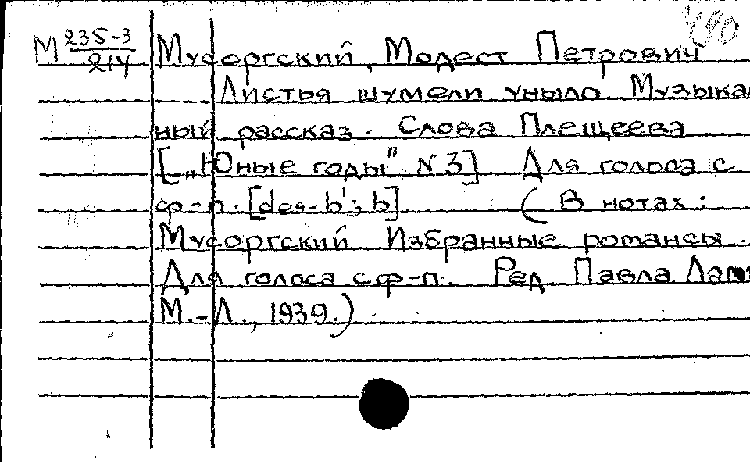 490
М 235-3/214 Мусоргский, Модест Петрович
Листья шумели уныло Музыкаль
ный рассказ. Слова Плещеева
[„Юные годы" N 3] Для голоса с
ф-п. [des-b'; b] (В нотах:
Мусоргский Избранные романсы.
Для голоса с ф-п. Ред. Павла
М.-Л., 1939.)